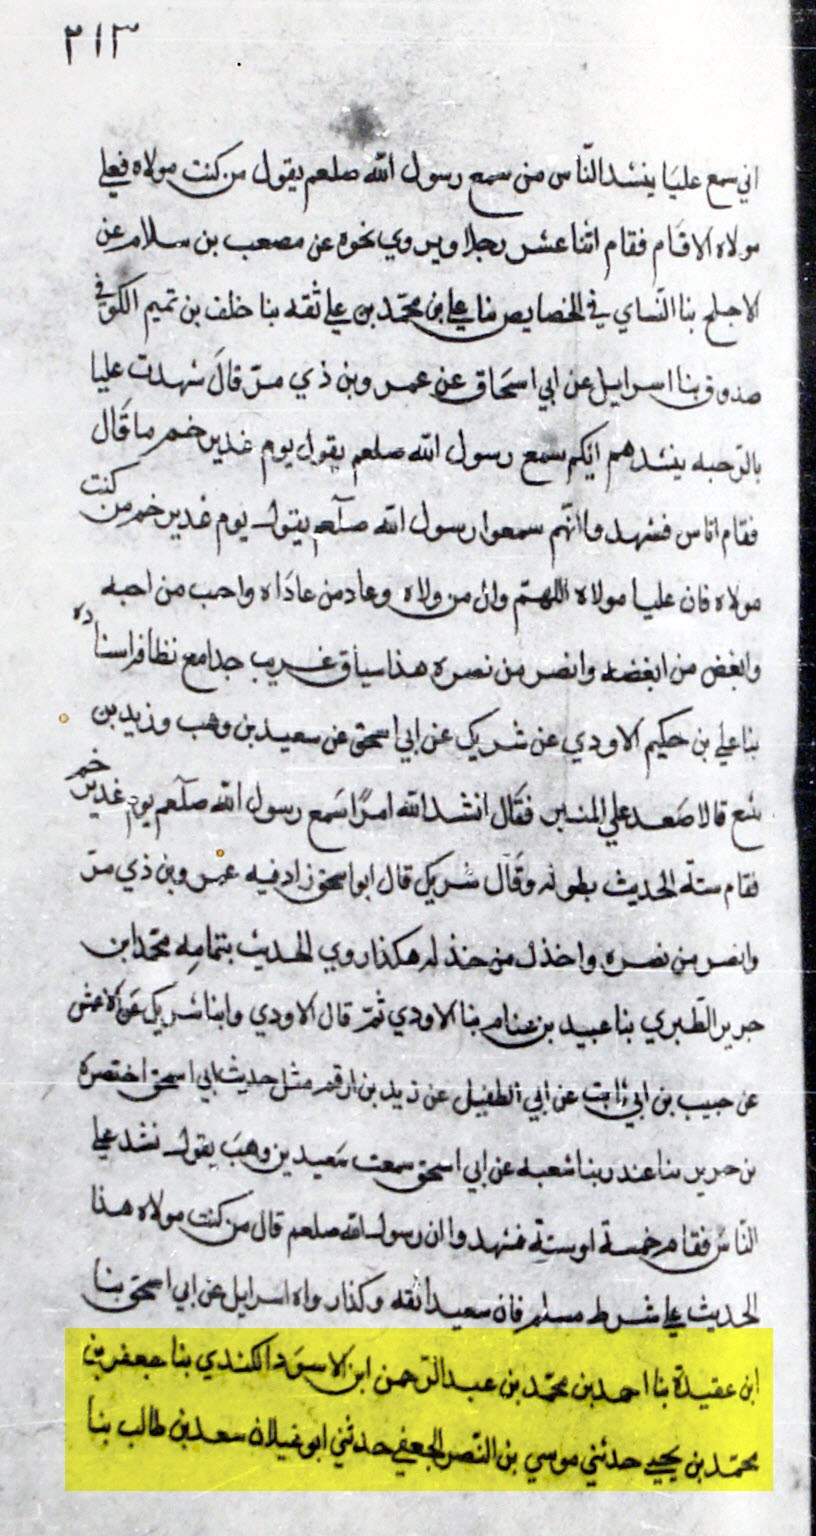 ٢١٣
اني سمع عليا ينشد الناس من سمع رسول الله صلعم يقول من كنت مولاه فعلي
مولاه الاقام فقام اثنا عشر رجلا ويروي نحوه عن مصعب بن سلام عن
الاجلح بنا النساي في الخصايص بنا علي بن محمد بن علي ثقه بنا خلف بن تميم الكوفي
صدوق بنا اسرايل عن ابي اسحاق عن عمرو بن ذي مر قال شهدت عليا
بالرحبه ينشدهم ايكم سمع رسول الله صلعم يقول يوم غدير خم ما قال
فقام اناس فشهدوا انهم سمعوا رسول الله صلعم يقول يوم غدير خم من كنت
مولاه فان عليا مولاه اللهم وال من ولاه وعاد من عاداه واحب من احبه
وابغض من ابغضه وانصر من نصره هذا سياق غريب جدا مع نظافر اسناده
بنا علي بن حكيم الاودي عن شريك عن ابي اسحق عن سعيد بن وهب وزيد بن
يثع قالا صعد علي المنبر فقال انشد الله امرًا سمع رسول الله صلعم يوم غدير خم
فقام ستة الحديث بطوله وقال شريك قال ابو اسحق زاد فيه عمرو بن ذي مر
وانصر من نصره واخذل من خذله هكذا روي الحديث بتمامه محمد ابن
جرير الطبري بنا عبيد بن غنام بنا الاودي ثم قال الاودي وابنا شريك عن الاعمش
عن حبيب بن ابي ثابت عن ابي الطفيل عن زيد بن ارقم مثل حديث ابي اسحق اختصره
بن جرير بنا غندر بنا شعبه عن ابي اسحق سمعت سعيد بن وهب يقول نشد علي
الناس فقام خمسة او ستة فشهدوا ان رسول الله صلعم قال من كنت مولاه هذا
الحديث علي شرط مسلم فان سعيدا ثقه وكذا رواه اسرايل عن ابي اسحق بنا
ابن عقيدة بنا احمد بن محمد بن عبد الرحمن ابن الاسود الكندي بنا جعفر بن
محمد بن يحيي حدثني موسي بن النصر الجعفي حدثني ابو غيلان سعد بن طالب بنا